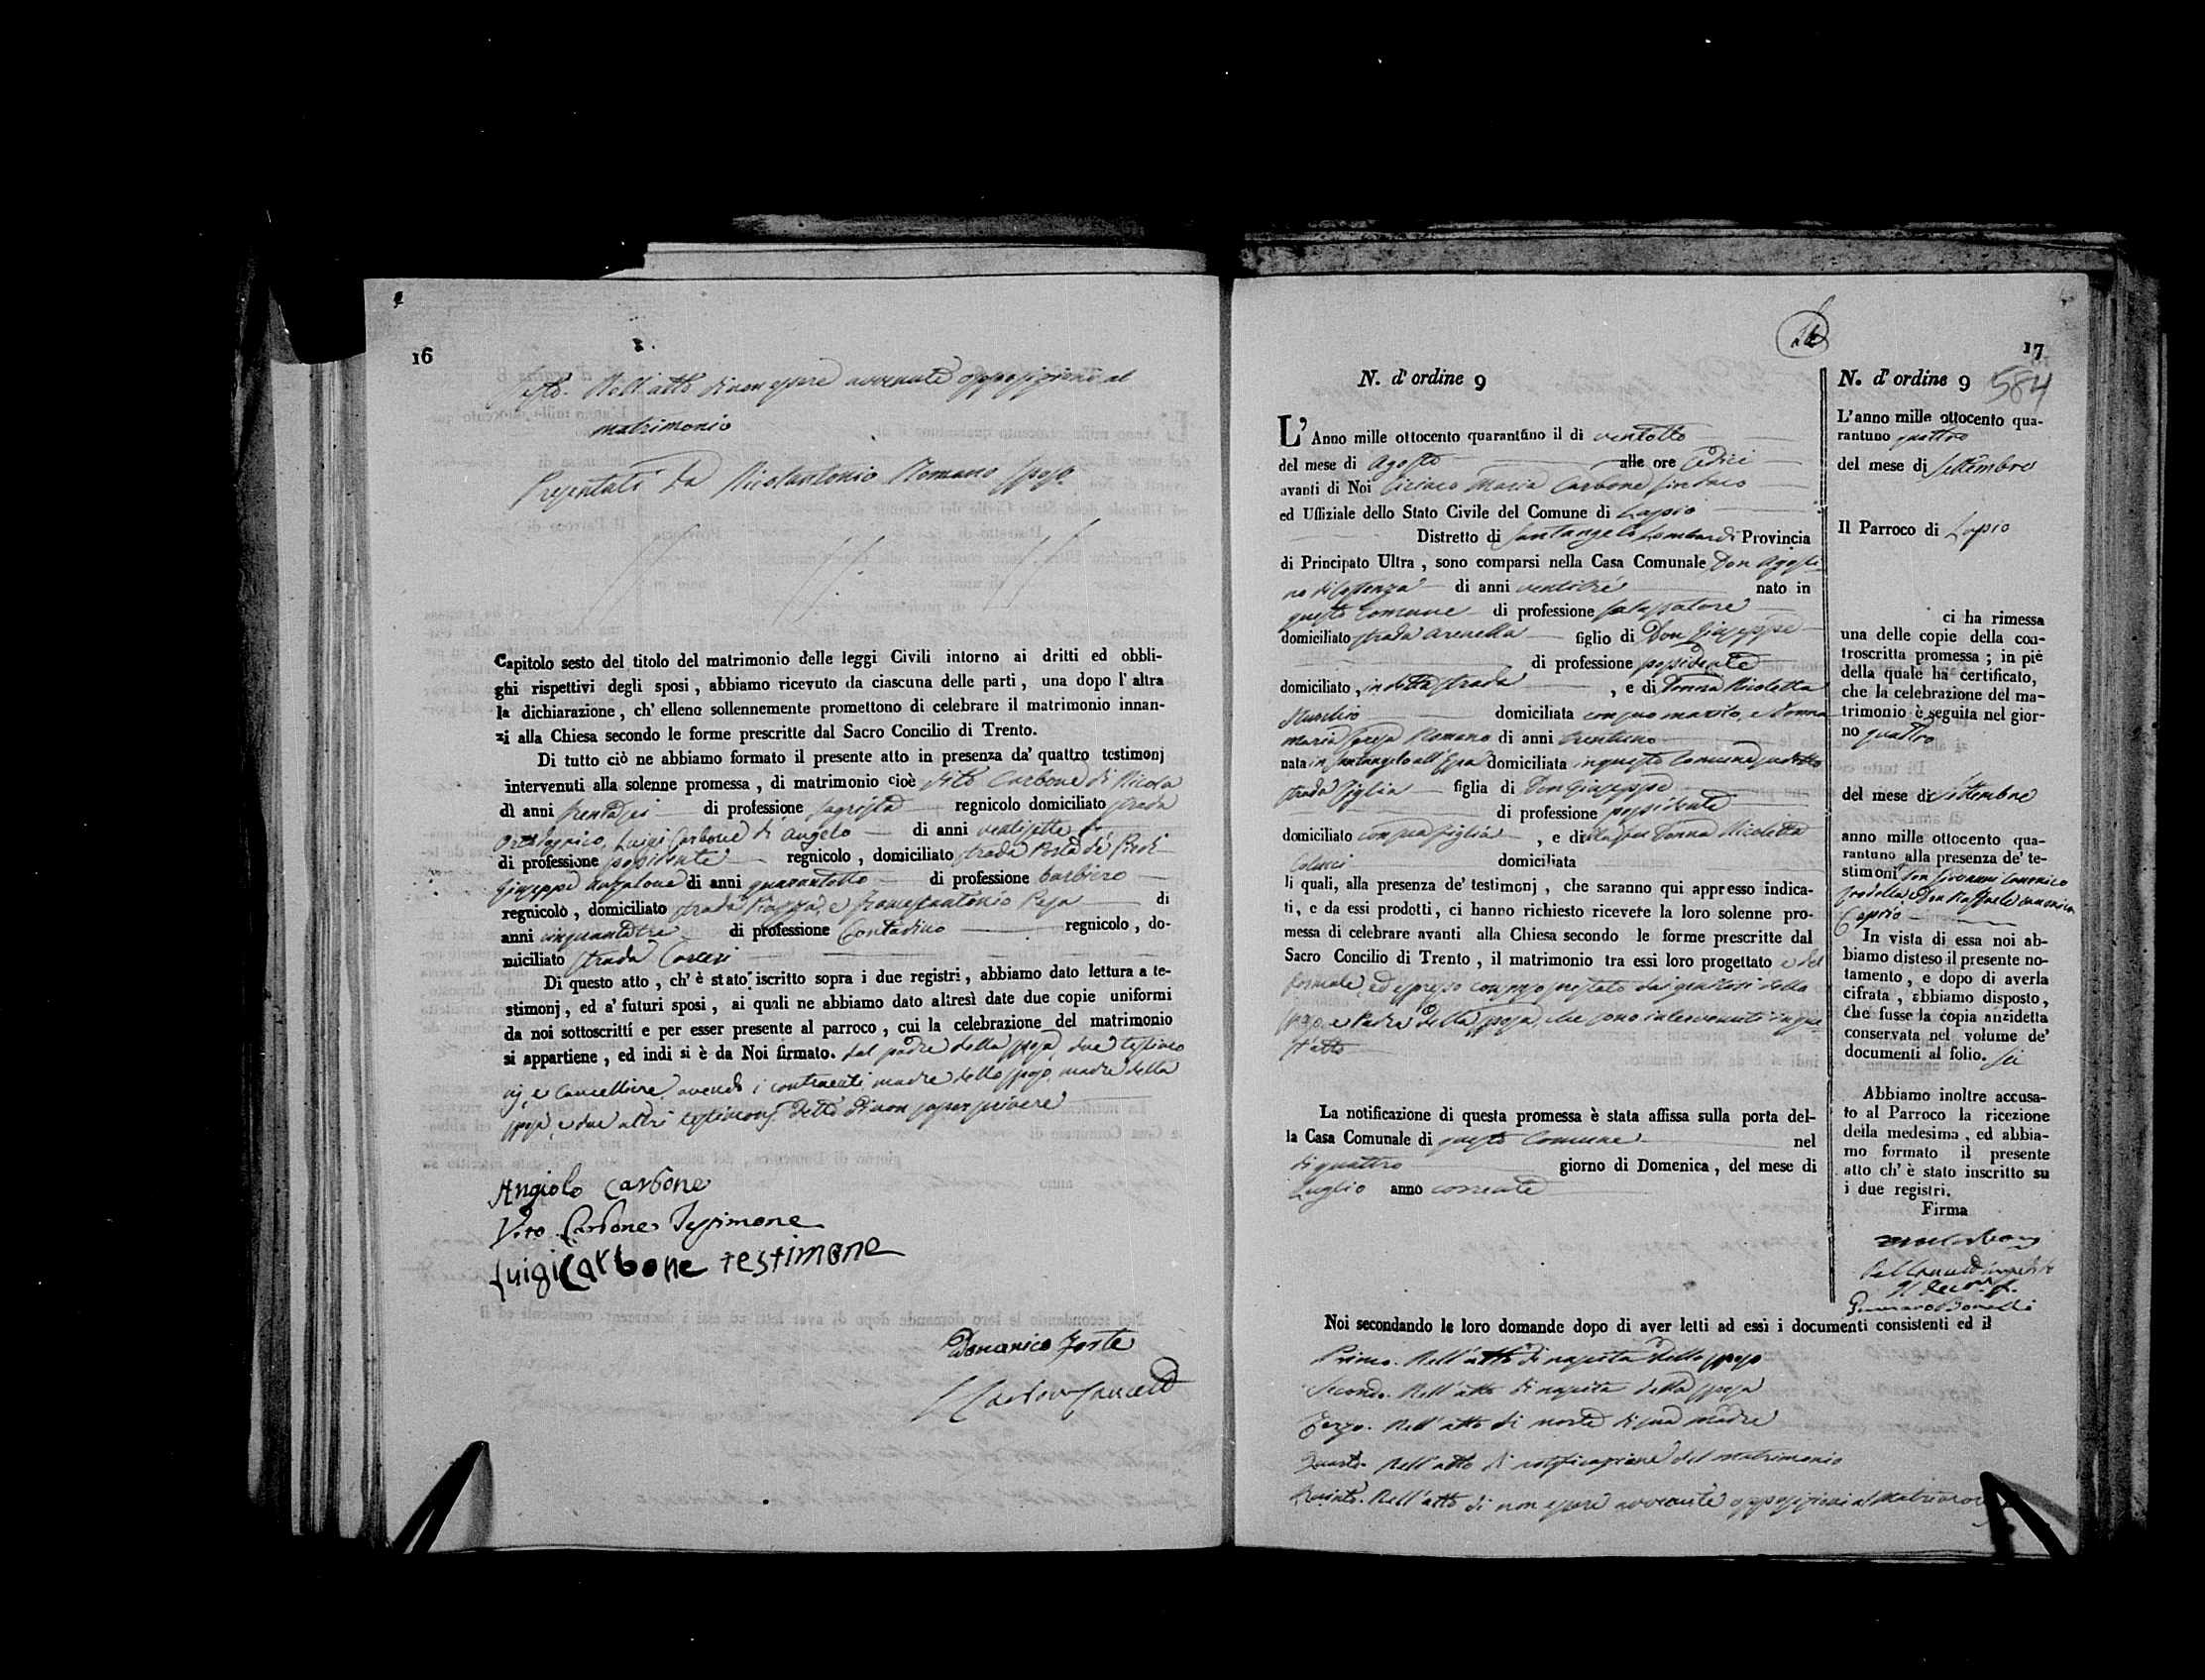 16
Sesto. Nell'atto di non essere avvenute opposizioni al
matrimonio
Presentati da Nicolantonio Romano sposo
Capitolo sesto del titolo del matrimonio delle leggi Civili intorno ai dritti ed obbli-
ghi rispettivi degli sposi, abbiamo ricevuto da ciascuna delle parti, una dopo l'altra
la dichiarazione, ch'elleno sollennemente promettono di celebrare il matrimonio innan-
zi alla Chiesa secondo le forme prescritte dal Sacro Concilio di Trento.
Di tutto ciò ne abbiamo formato il presente atto in presenza da' quattro testimonj
intervenuti alla solenne promessa, di matrimonio cioè Vito Carbone di Nicola
di anni trentasei di professione sagrista regnicolo domiciliato strada
Luigi Carbone di Angelo di anni ventisette
di professione possidente regnicolo, domiciliato strada Porta de'
Giuseppe Anzalone di anni quarantotto di professione barbiero
regnicolo, domiciliato strada Piazza, e Francescantonio Pepa di
anni cinquantatre di professione Contadino regnicolo, do-
miciliato strada Carceri
Di questo atto, ch'è stato iscritto sopra i due registri, abbiamo dato lettura a te-
stimonj, ed a' futuri sposi, ai quali ne abbiamo dato altresì date due copie uniformi
da noi sottoscritti e per esser presente al parroco, cui la celebrazione del matrimonio
si appartiene, ed indi si è da Noi firmato. dal padre della sposa, due testimo
nj, e Cancelliere, avendo i contraenti, madre dello sposo, madre della
sposa, e due altri testimonj detto di non saper scrivere
Angiolo Carbone
Vito Carbone Tesstimone
Luigi Carbone testimone
Domenico Forte
17
N. d'ordine 9
L'Anno mille ottocento quarantuno il di ventotto
del mese di Agosto alle ore sedici
avanti di Noi Ciriaco Maria Carbone Sindaco
ed Uffiziale dello Stato Civile del Comune di Lapio
Distretto di Santangelo Lombardi Provincia
di Principato Ultra, sono comparsi nella Casa Comunale Don Agosti
no di anni ventitrè nato in
questo Comune di professione salassatore
domiciliato strada Arenella figlio di Don Giuseppe
di professione possidente
domiciliato, in detta strada, e di Donna Nicoletta
domiciliata con suo marito, e Donna
Maria Romano di anni trentuno
nata in Santangelo all'Esca domiciliata in questo Comune
strada figlia di Don Giuseppe
di professione possidente
domiciliato con sua figlia, e di Donna Nicoletta
Colucci domiciliata
li quali, alla presenza de' testimonj, che saranno qui appresso indica-
ti, e da essi prodotti, ci hanno richiesto ricevere la loro solenne pro-
messa di celebrare avanti alla Chiesa secondo le forme prescritte dal
Sacro Concilio di Trento, il matrimonio tra essi loro progettato e del
formale, ed espresso consenso prestato dai genitori dello
sposo, e Padre della sposa, che sono intervenuti in que
st'atto
La notificazione di questa promessa è stata affissa sulla porta del-
la Casa Comunale di questo Comune nel
di quattro giorno di Domenica, del mese di
Luglio anno corrente
N. d'ordine 9 584
L'anno mille ottocento qua-
rantuno quattro
del mese di Settembre
Il Parroco di Lapio
ci ha rimessa
una delle copie della con-
troscritta promessa; in piè
della quale ha certificato,
che la celebrazione del ma-
trimonio è seguita nel gior-
no quattro
del mese di Settembre
anno mille ottocento qua-
rantuno alla presenza de' te-
stimoni Don Giovanni Canonico
e Don Raffaele Canonico
Caprio
In vista di essa noi ab-
biamo disteso il presente no-
tamento, e dopo di averla
cifrata, abbiamo disposto,
che fusse la copia anzidetta
conservata nel volume de'
documenti al folio. sei
Abbiamo inoltre accusa-
to al Parroco la ricezione
della medesima, ed abbia-
mo formato il presente
atto ch'è stato inscritto su
i due registri.
Firma
Gennaro Bonelli
Noi secondando le loro domande dopo di aver letti ad essi i documenti consistenti ed il
Primo. Nell'atto di nascita dello sposo
Secondo. Nell'atto di nascita della sposa
Terzo. Nell'atto di morte di sua madre
Quarto. Nell'atto di notificazione del matrimonio
Quinto. Nell'atto di non essere avvenute opposizioni al matrimonio